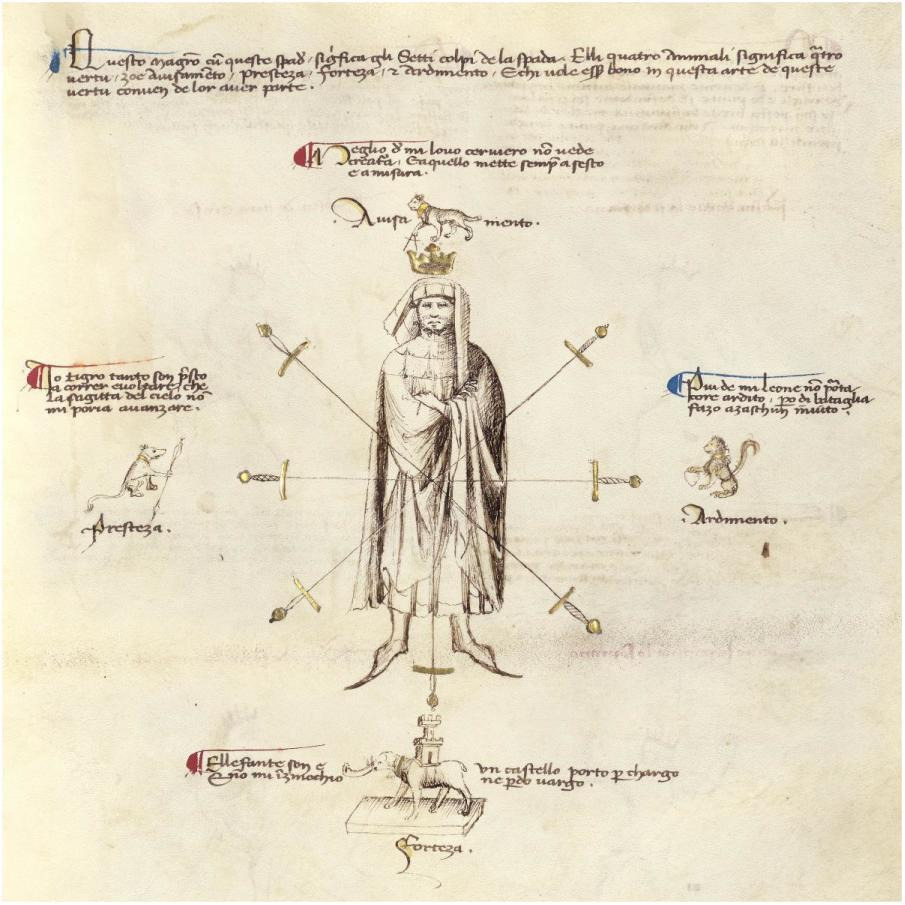 Questo magro cū queste spad' significa gli Setti colpi de la spada. Elli quatro animali significa q̄tro
vertu, zoe avisamēto, presteza, forteza, & ardimento, E chi vole ess' bono in questa arte de queste
vertu conven de lor aver parte.
Meglio d' mi lovo cerviero nō vede
creatura, E aquello mette semp' a sesto
e a misura.
Avisamento.
Io tigro tanto son p'sto
a correr e voltare, che
la sagitta del cielo nō
mi poria avanzare.
Presteza.
Piu de mi leone nō porta
core ardito, po di bataglia
fazo a zaschun invito.
Ardimento.
Ellefante son e
un castello porto p chargo
E nō mi inzinochio
ne p'do vargo.
Forteza.